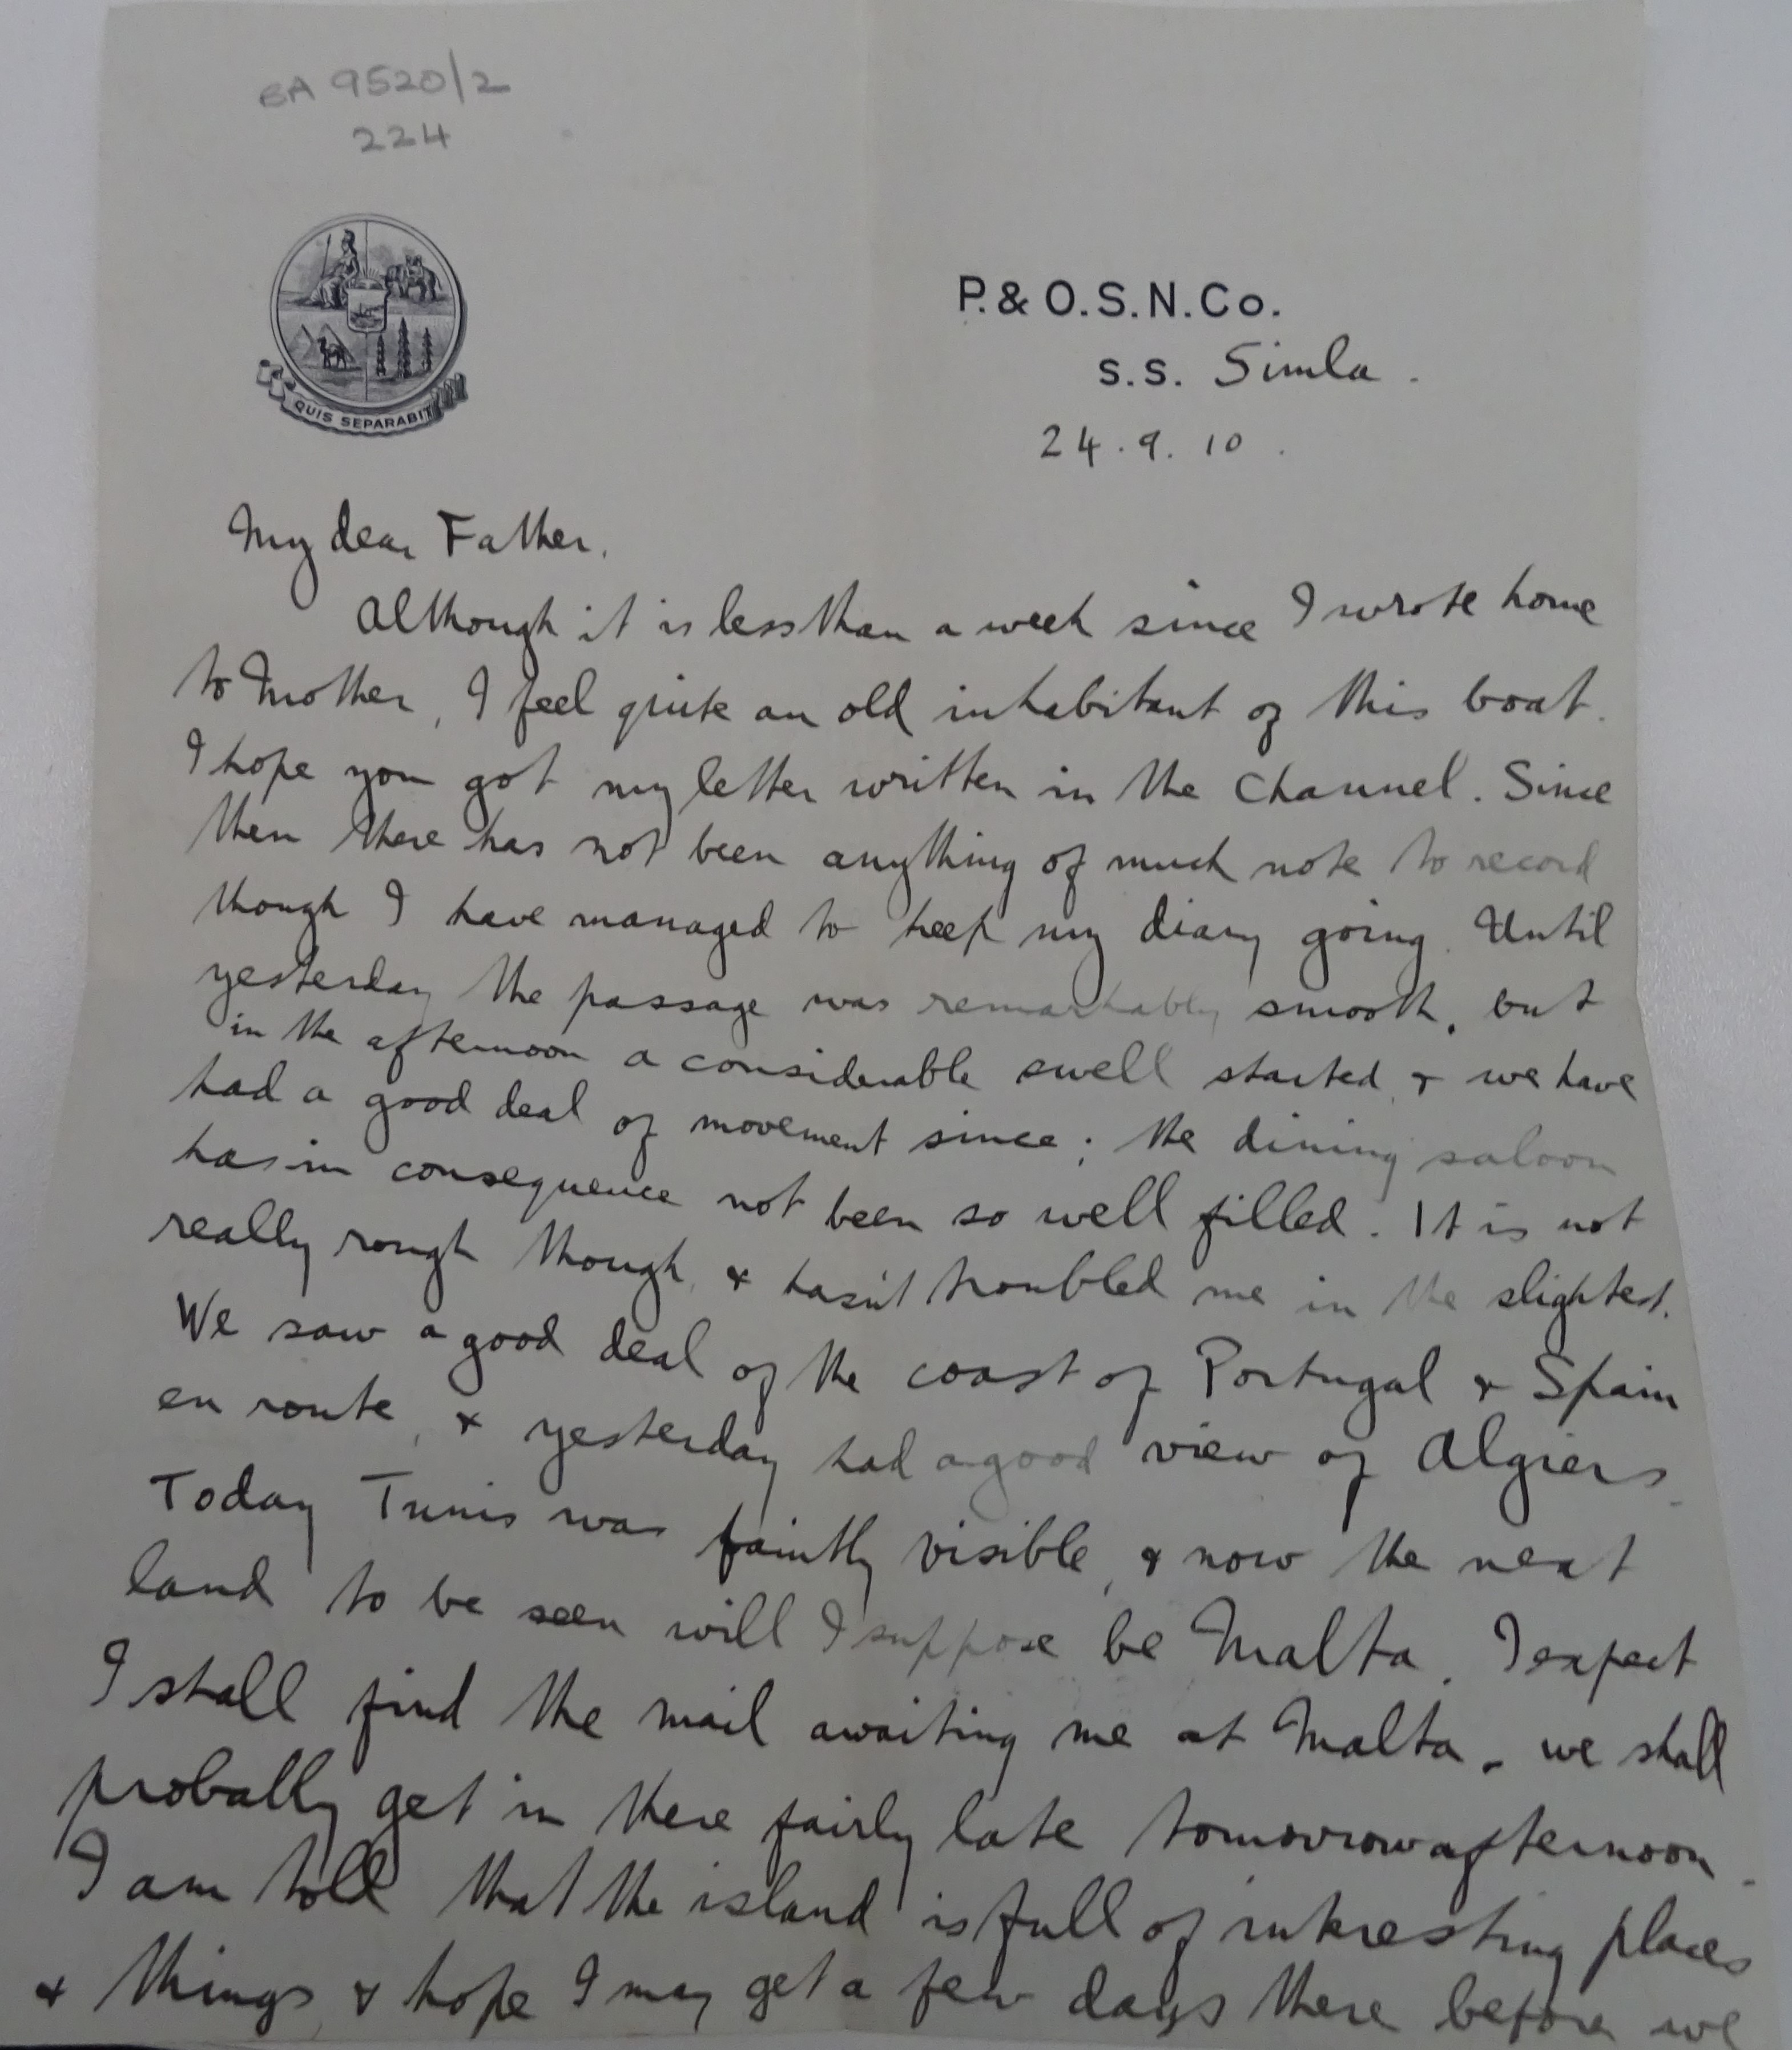 BA 9520/2
224
QUIS SEPARABIT
P. & O. S. N. Co.
S.S. Simla.
24.9.10.
My dear Father.
Although it is less than a week since I wrote home
to Mother, I feel quite an old inhabitant of this boat.
I hope you got my letter written in the Channel. Since
then there has not been anything of much note to record
though I have managed to keep my diary going. Until
yesterday the passage was remarkably smooth, but
in the afternoon a considerable swell started, & we have
had a good deal of movement since; the dining saloon
has in consequence not been so well filled. It is not
really rough though, & hasn't troubled me in the slightest.
We saw a good deal of the coast of Portugal & Spain
en route, & yesterday had a good view of Algiers.
Today Tunis was faintly visible, & now the next
land to be seen will I suppose be Malta. I expect
I shall find the mail awaiting me at Malta - we shall
probally get in there fairly late tomorrow afternoon.
I am told that the island is full of interesting places
& things, & hope I may get a few days there before we